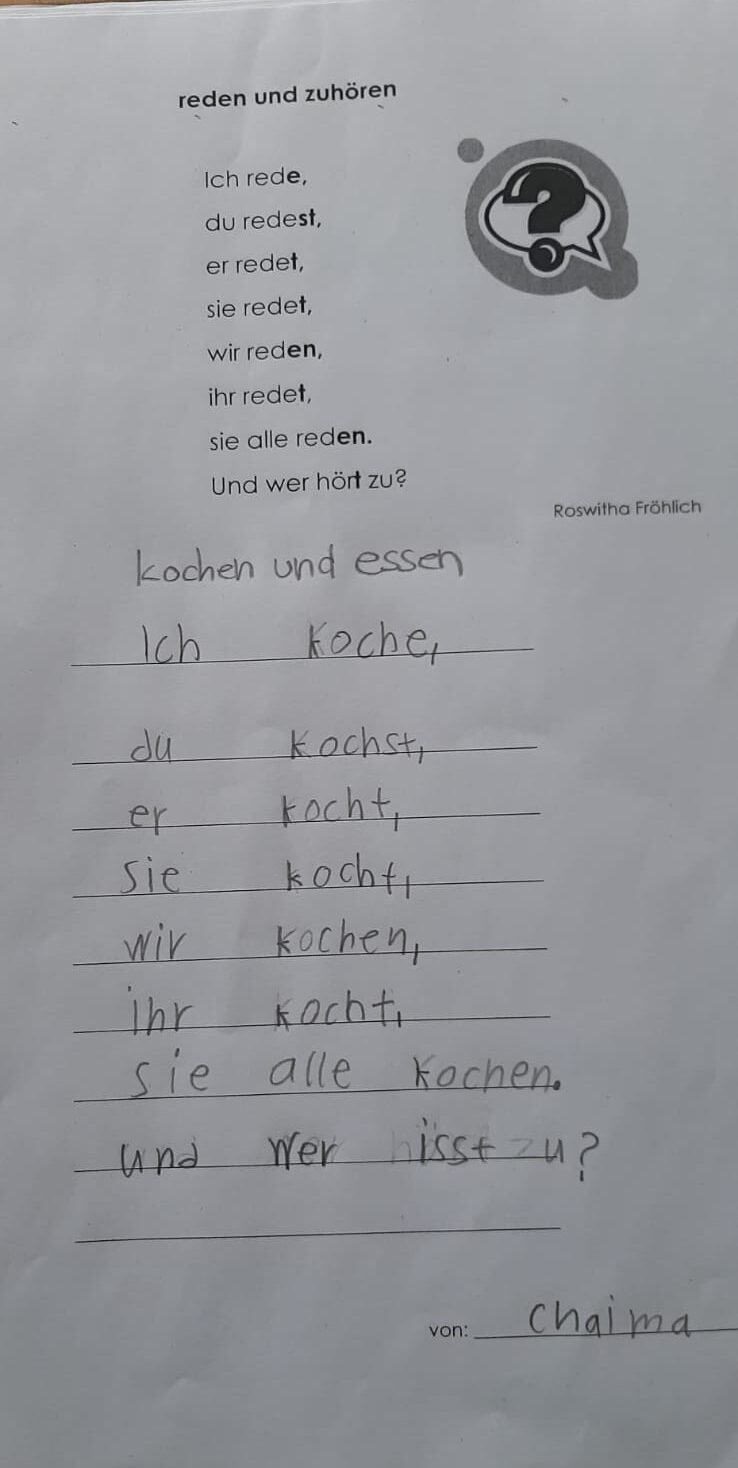 reden und zuhören
Ich rede,
du redest,
er redet,
sie redet,
wir reden,
ihr redet,
sie alle reden.
Und wer hört zu?
Roswitha Fröhlich
kochen und essen
Ich koche,
du kochst,
er kocht,
sie kocht,
wir kochen,
ihr kocht,
sie alle kochen.
und wer isst zu?
von: Chaima